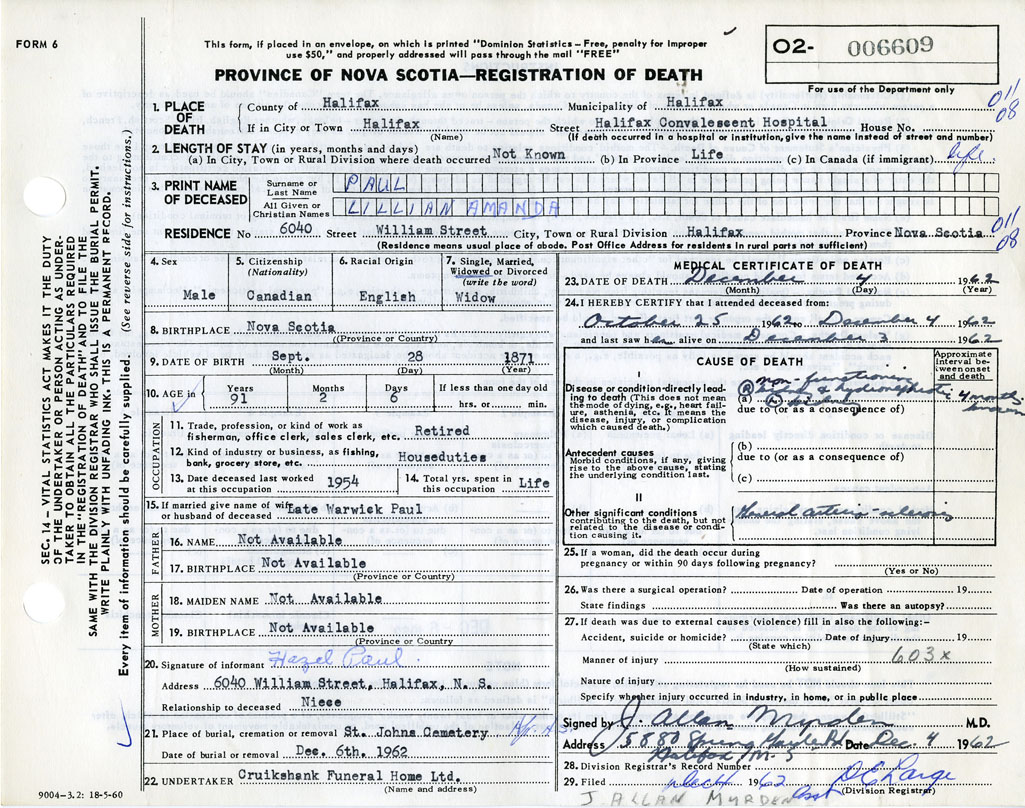 FORM 6
This form, if placed in an envelope, on which is printed "Dominion Statistics—Free, penalty for improper
use $50," and properly addressed will pass through the mail "FREE"
O2- 006609
For use of the Department only
PROVINCE OF NOVA SCOTIA—REGISTRATION OF DEATH
011
08
1. PLACE OF DEATH
County of Halifax Municipality of Halifax
If in City or Town Halifax Street Halifax Convalescent Hospital House No.
(Name) (If death occurred in a hospital or institution, give the name instead of street and number)
2. LENGTH OF STAY (in years, months and days)
(a) In City, Town or Rural Division where death occurred Not Known (b) In Province Life (c) In Canada (if immigrant) life
3. PRINT NAME OF DECEASED
Surname or Last Name PAUL
All Given or Christian Names LILLIAN AMANDA
011
08
RESIDENCE No 6040 Street William Street City, Town or Rural Division Halifax Province Nova Scotia
(Residence means usual place of abode. Post Office Address for residents in rural parts not sufficient)
4. Sex Male
5. Citizenship (Nationality) Canadian
6. Racial Origin English
7. Single, Married, Widowed or Divorced (write the word) Widow
8. BIRTHPLACE Nova Scotia
((Province or Country)
9. DATE OF BIRTH Sept. 28 1871
(Month) (Day) (Year)
10. AGE in Years 91 Months 2 Days 6 If less than one day old hrs. or min.
OCCUPATION
11. Trade, profession, or kind of work as
fisherman, office clerk, sales clerk, etc. Retired
12. Kind of industry or business, as fishing,
bank, grocery store, etc. Houseduties
13. Date deceased last worked
at this occupation 1954
14. Total yrs. spent in
this occupation Life
15. If married give name of wife
or husband of deceased Late Warwick Paul
FATHER
16. NAME Not Available
17. BIRTHPLACE Not Available
(Province or Country)
MOTHER
18. MAIDEN NAME Not Available
19. BIRTHPLACE Not Available
(Province or Country
20. Signature of informant Hazel Paul
Address 6040 William Street, Halifax, N. S.
Relationship to deceased Niece
21. Place of burial, cremation or removal St. Johns Cemetery
Date of burial or removal Dec. 6th. 1962
22. UNDERTAKER Cruikshank Funeral Home Ltd.
(Name and address)
9004-3.2: 18-5-60
MEDICAL CERTIFICATE OF DEATH
23. DATE OF DEATH December 4 1962
(Month) (Day) (Year)
24. I HEREBY CERTIFY that I attended deceased from:
October 25 1962 to December 4 1962
and last saw her alive on December 3 1962
CAUSE OF DEATH
Approximate interval between onset and death
I
Disease or condition directly leading to death (This does not mean the mode of dying, e.g., heart failure, asthenia, etc. It means the disease, injury, or complication which caused death.)
non-functioning
(a) 4 months
due to (or as a consequence of)
Antecedent causes
Morbid conditions, if any, giving rise to the above cause, stating the underlying condition last.
(b)
due to (or as a consequence of)
(c)
II
Other significant conditions contributing to the death, but not related to the disease or condition causing it.
General arterio-sclerosis
25. If a woman, did the death occur during
pregnancy or within 90 days following pregnancy?
(Yes or No)
26. Was there a surgical operation? Date of operation 19
State findings Was there an autopsy?
27. If death was due to external causes (violence) fill in also the following:-
Accident, suicide or homicide? Date of injury 19
(State which)
Manner of injury 603x
(How sustained)
Nature of injury
Specify whether injury occurred in industry, in home, or in public place
Signed by J. Allan Myrden M.D.
Address 5880 Spring Garden Rd Date Dec 4 1962
Halifax N-S
28. Division Registrar's Record Number
29. Filed 1962
(Division Registrar)
J. ALLAN MYRDEN
SEC. 14—VITAL STATISTICS ACT MAKES IT THE DUTY
OF THE UNDERTAKER OR PERSON ACTING AS UNDER-
TAKER "TO OBTAIN ALL THE PARTICULARS REQUIRED
IN THE "REGISTRATION OF DEATH" AND TO FILE THE
SAME WITH THE DIVISION REGISTRAR WHO SHALL ISSUE THE BURIAL PERMIT.
WRITE PLAINLY WITH UNFADING INK. THIS IS A PERMANENT RECORD.
Every item of information should be carefully supplied (See reverse side for instructions.)